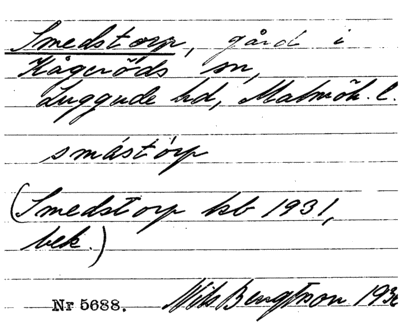 Smedstorp, gård i
Kågeröds sn,
Luggude hd, Malmöh. l.
smástorp
(Smedstorp hsb 1931,
bek.)
Nr 5688. Nils Bengtson